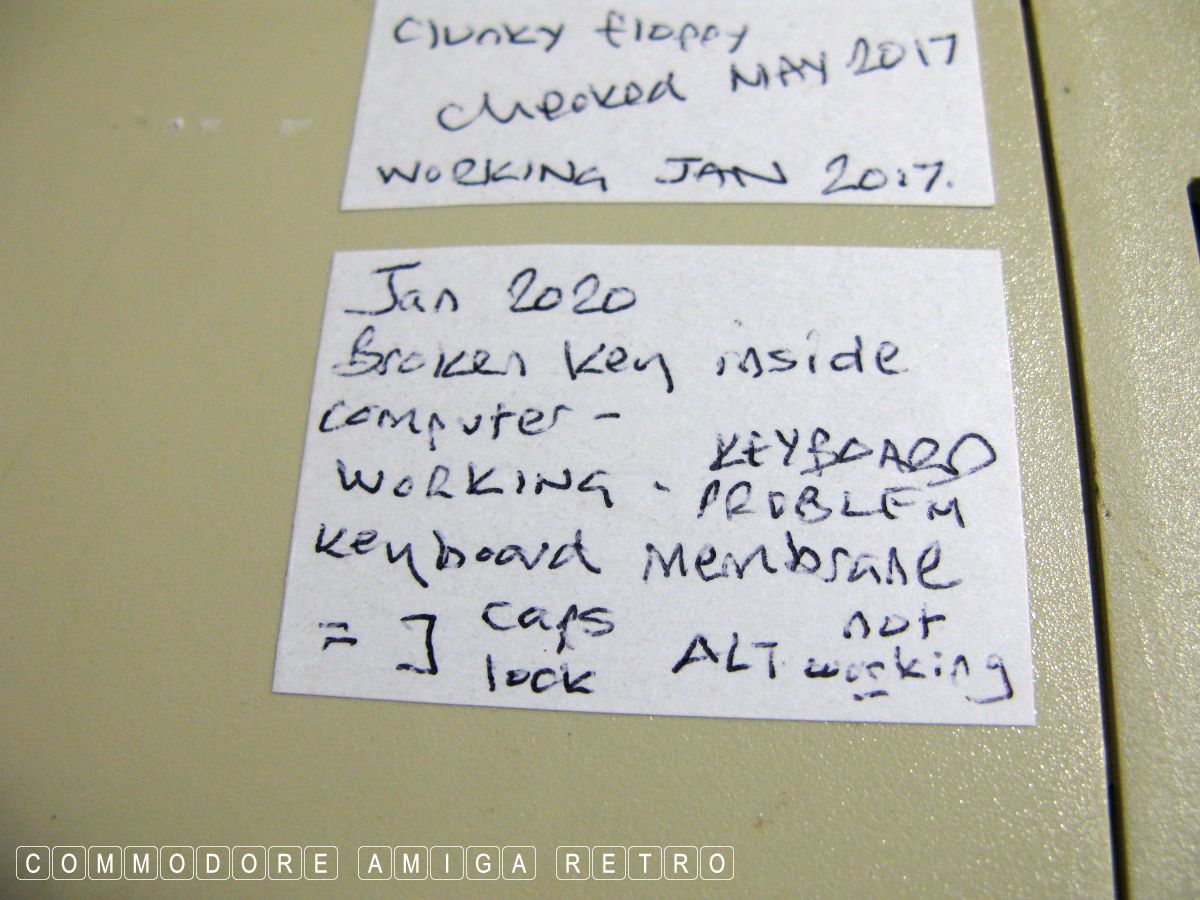 Clunky floppy
checked MAY 2017
WORKING JAN 2017.
Jan 2020
Broken key inside
computer -
WORKING - KEYBOARD
PROBLEM
Keyboard Membrane
= ] caps lock ALT not working
COMMODORE AMIGA RETRO